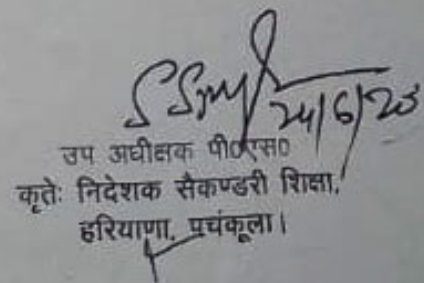 24/6/20
उप अधीक्षक पी०एस०
कृतेः निदेशक सैकण्डरी शिक्षा,
हरियाणा, पचंकूला।